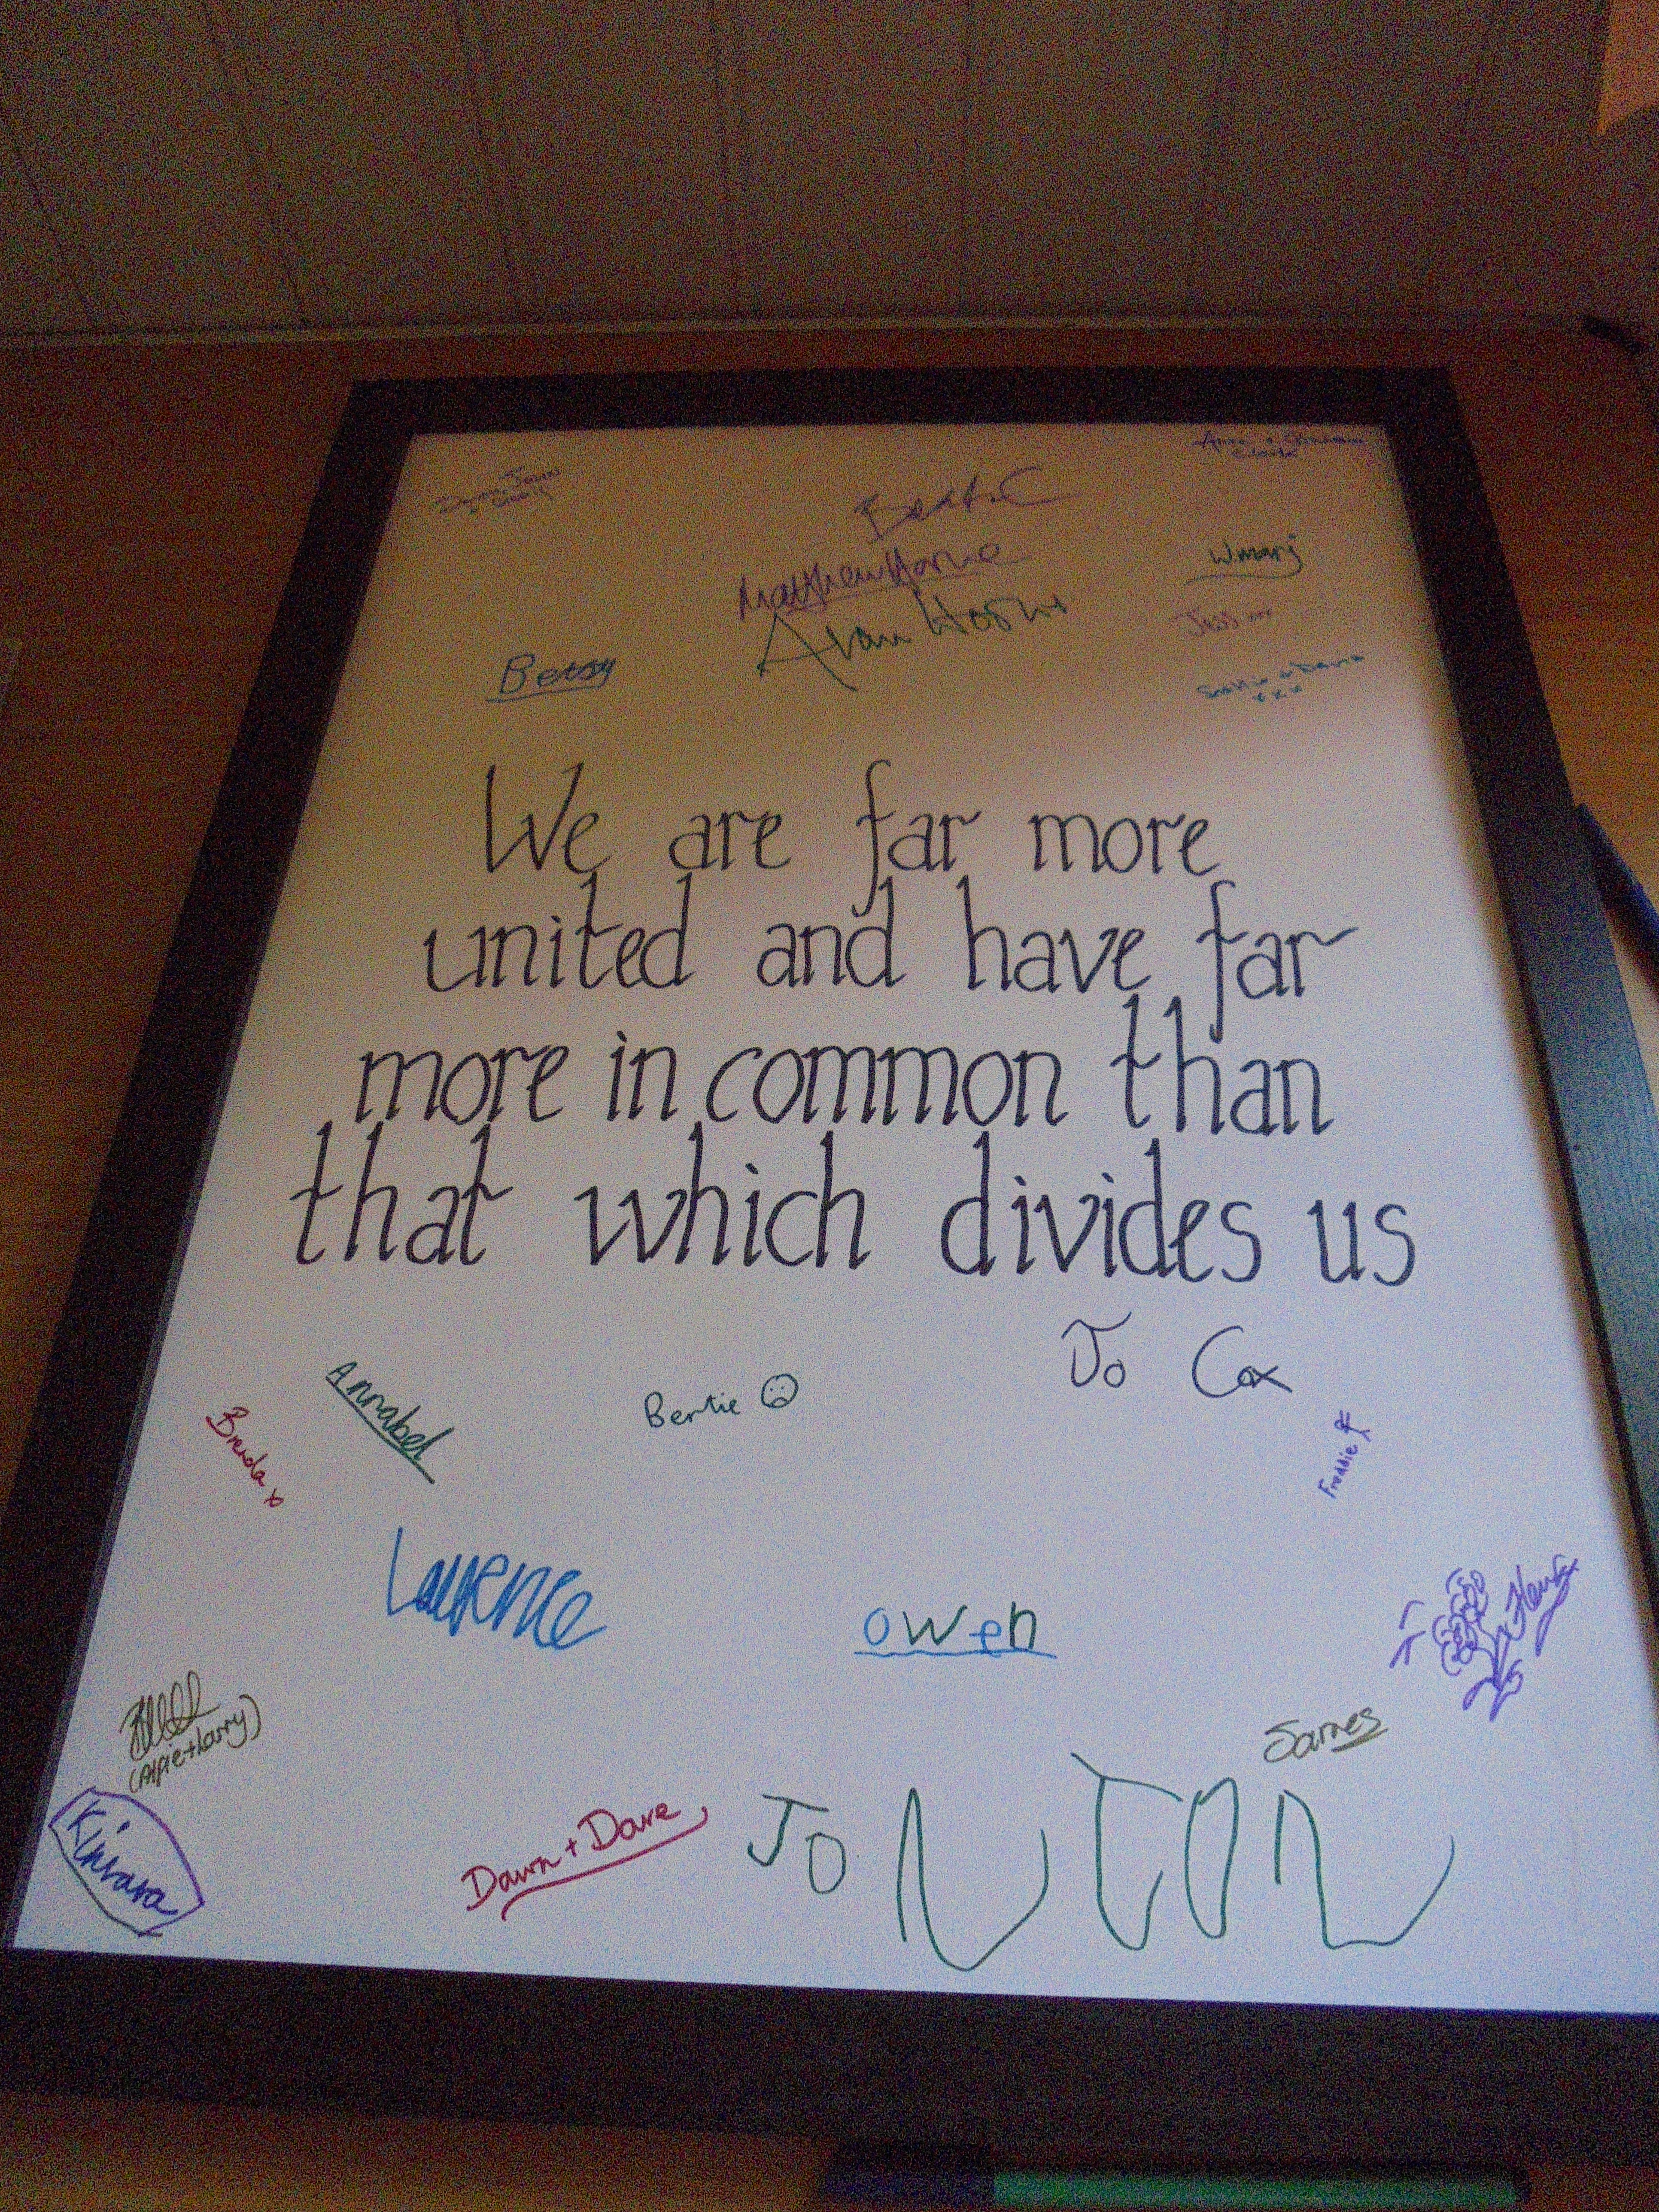 Bert.C
Matthew Horne
Alan Horne
Wmarj
Betsy
We are far more
united and have far
more in common than
that which divides us
Jo Cox
Annabel
Bertie
Brenda x
Freddie
Laurence
owen
Henry
(Alfie + Larry)
James
Kinvara
Dawn + Dave